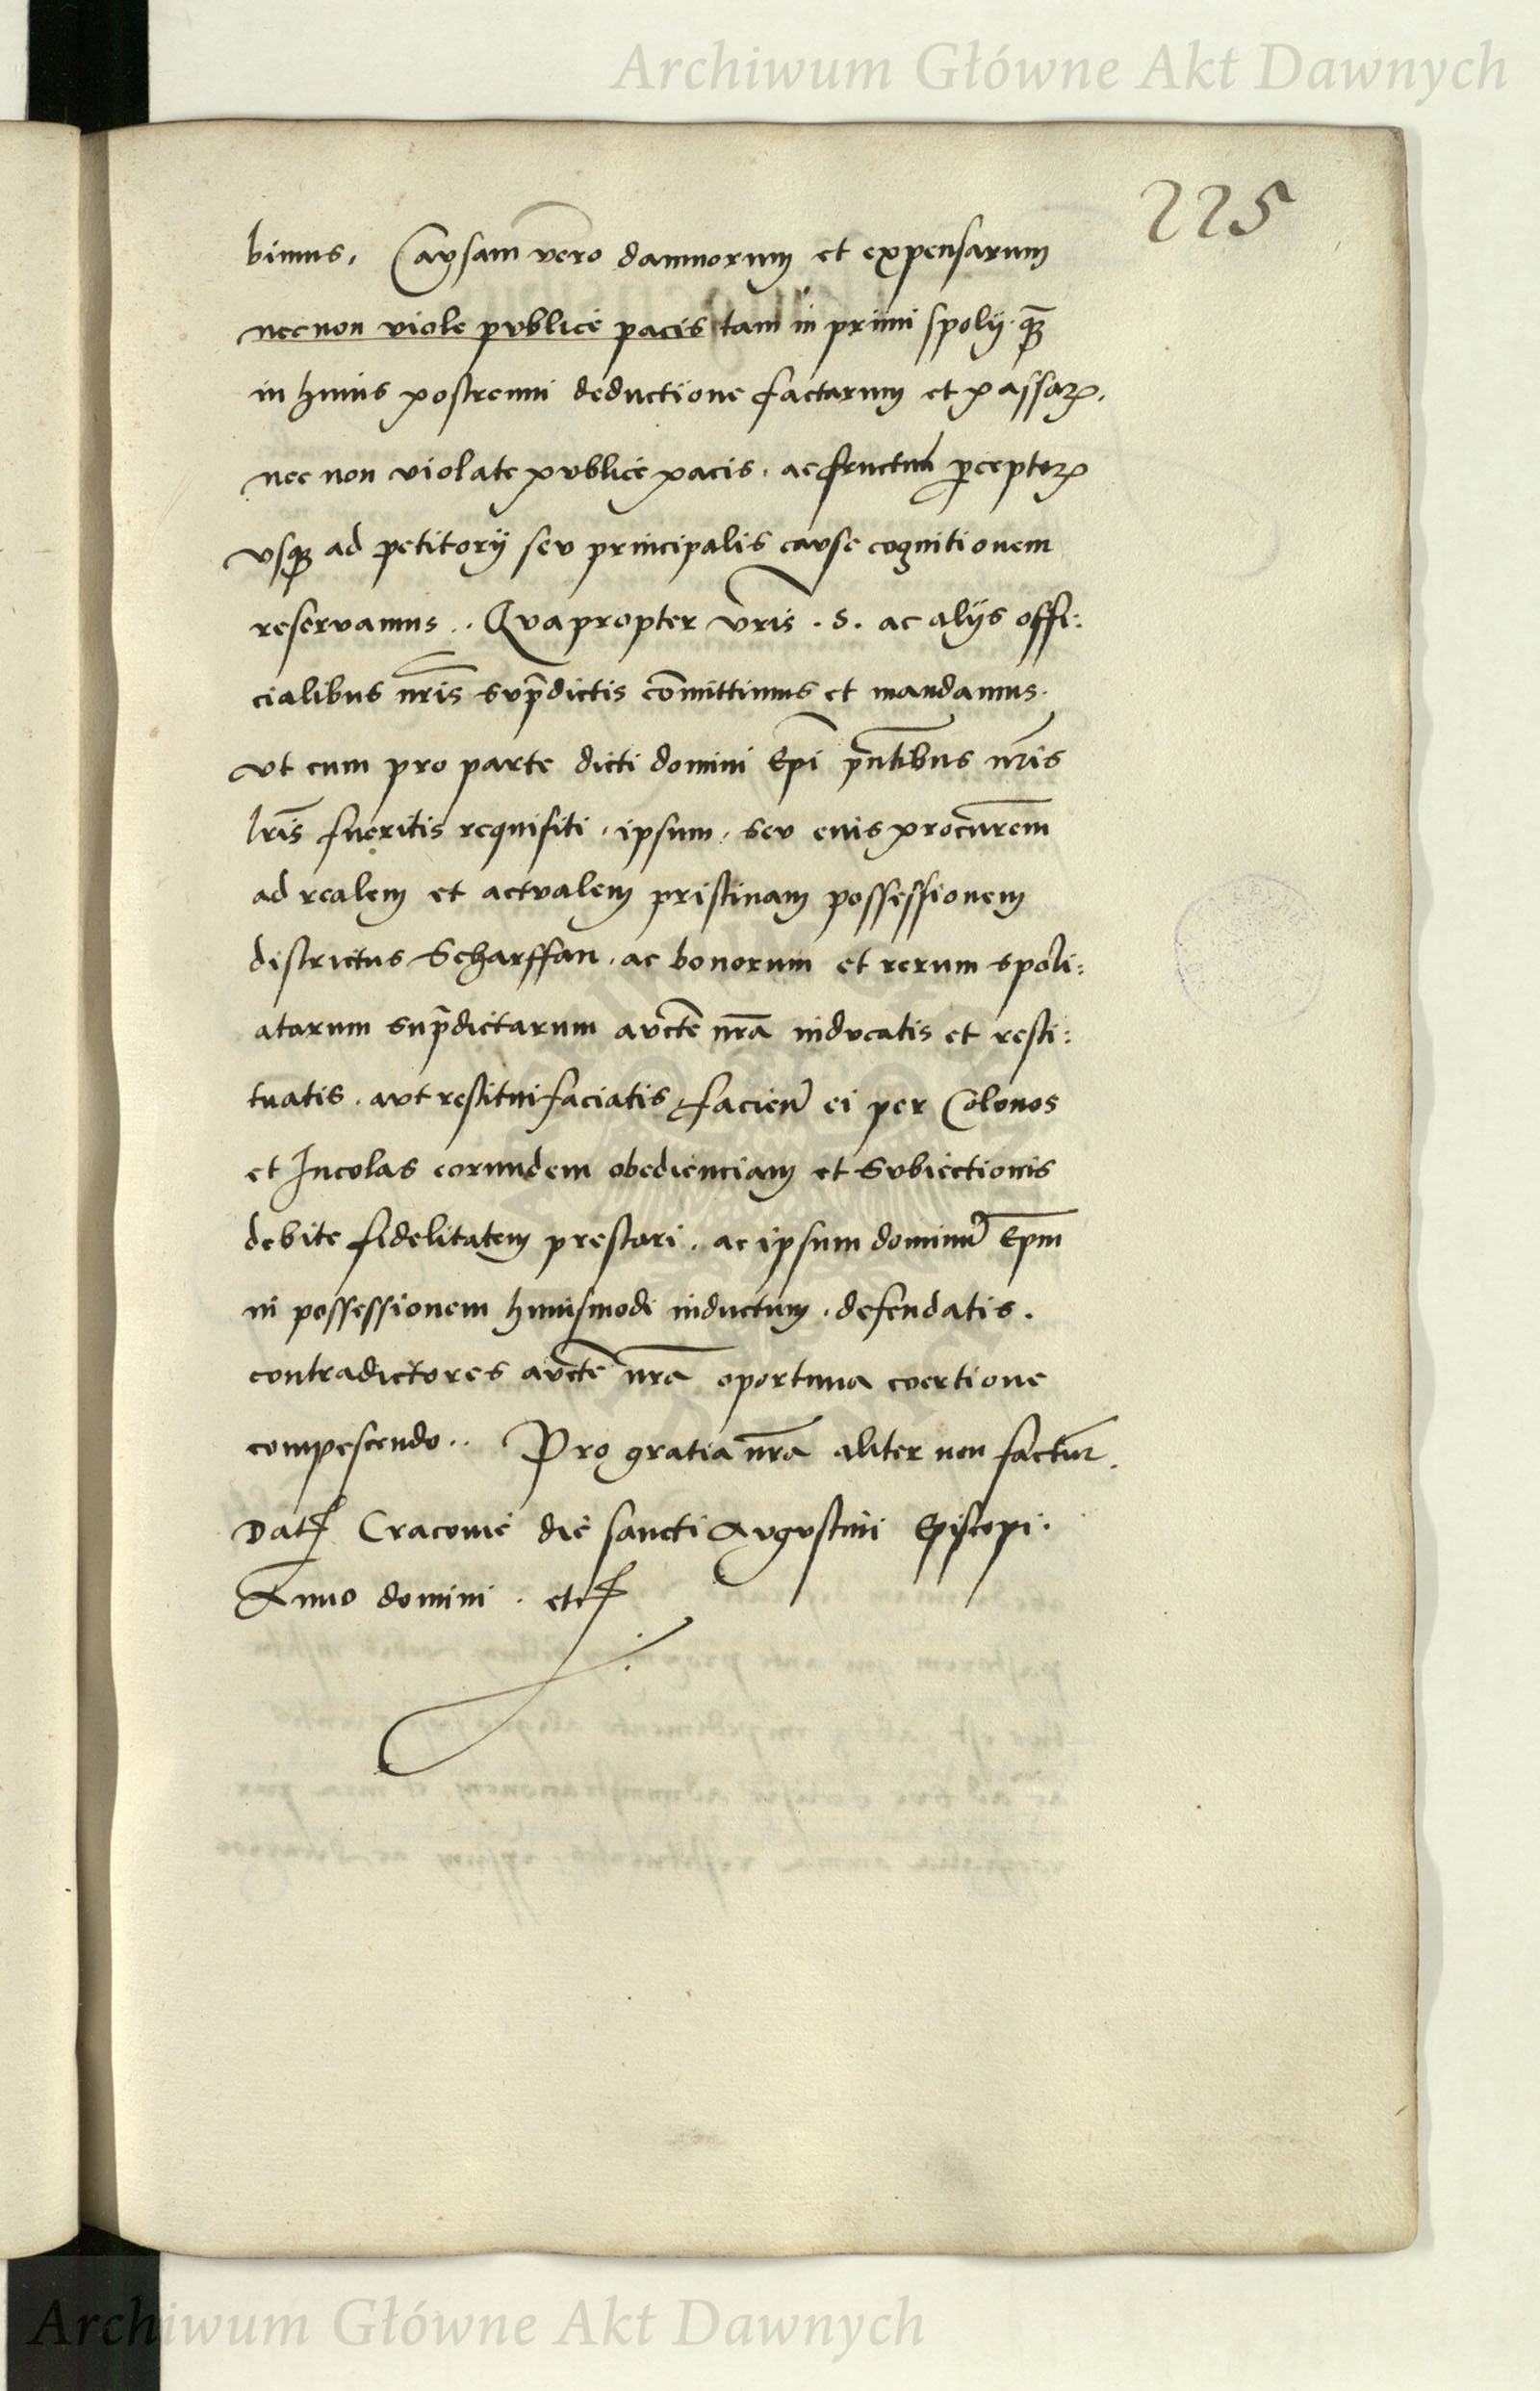 Archiwum Główne Akt Dawnych
225
bimus. Causam vero damnorum et expensarum
necnon viole publice pacis tam in primi spolÿ. qȝ
in huius postremi deductione factarum et passarꝝ.
nec non violate publice pacis. ac fructuū perceptorꝝ
vsqȝ ad petitorÿ seu principalis cause cognitionem
reservamus.. Quapropter vr̄is. S. ac alÿs offi:
cialibus nr̄is supradictis com̄ittimus et mandamus.
vt cum pro parte dicti domini Ep̄i pn̄tibus nr̄is
lr̄is fueritis requisiti. ipsum. seu eius procurem̄
ad realem et actualem pristinam possessionem
districtus Scharffan. ac bonorum et rerum spoli:
atarum sup̄dictarum auc̄te nr̄a inducatis et resti:
tuatis. aut restitui faciatis, facien̄ ei per Colonos
et Incolas eorundem obedienciam et Subiectionis
debite fidelitatem prestari. ac ipsum dominū Ep̄m
in possessionem huiusmodi inductum. defendatis.
contradictores auc̄te nr̄a oportuna coertione
compescendo.. Pro gratia nr̄a aliter non factur̄.
Dat Cracovie die sancti Augustini Episcopi.
Anno domini. etc
Archiwum Główne Akt Dawnych